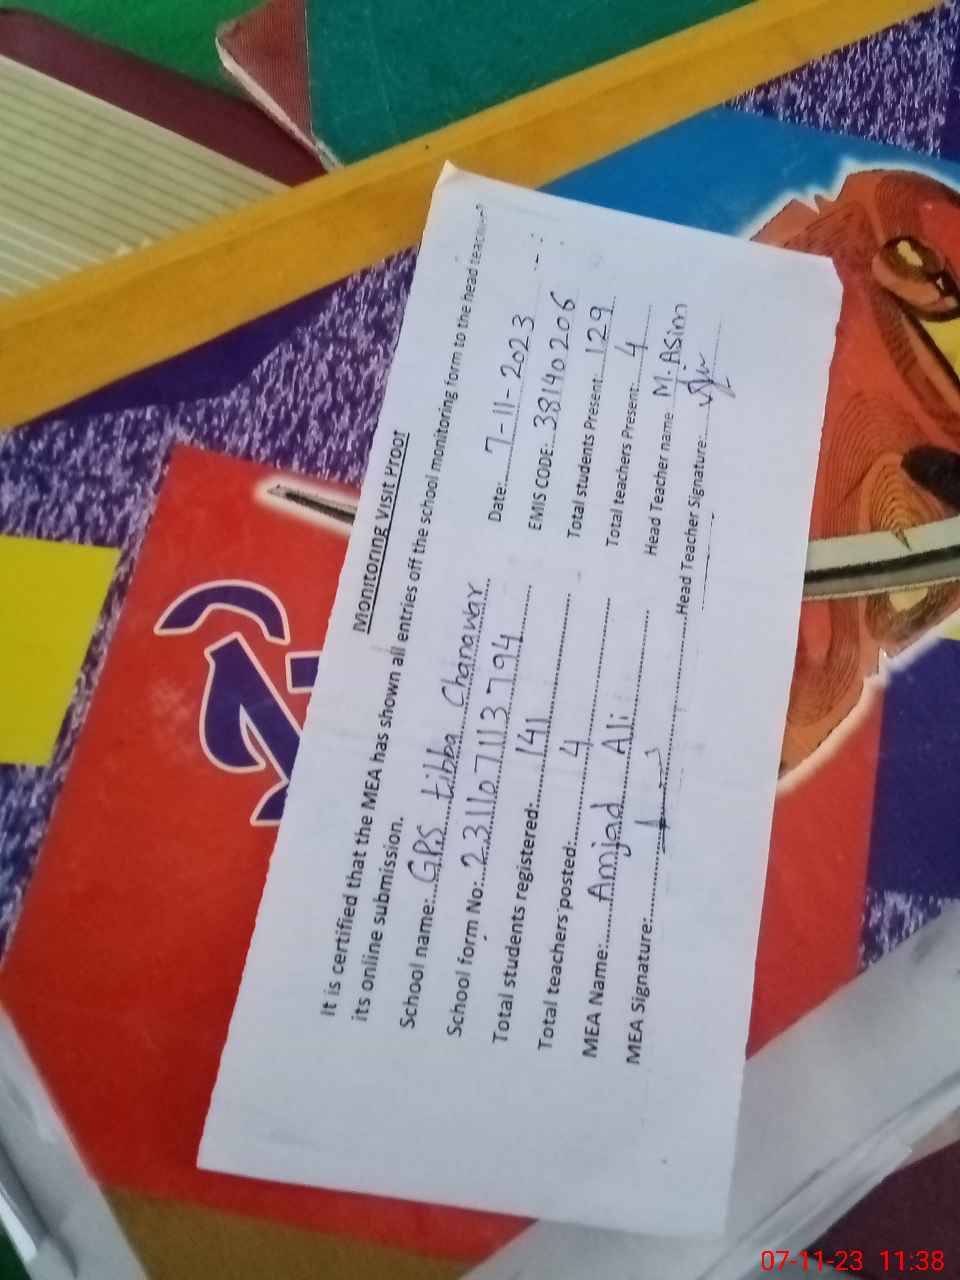 Monitoring Visit Proof
It is certified that the MEA has shown all entries off the school monitoring form to the head teacher
its online submission.
School name:....GPS tibba Chanawar Date:....7-11-2023
School form No:..231107113794 EMIS CODE:...38140206
Total students registered:....141 Total students Present:...129
Total teachers posted:....4 Total teachers Present:....4
MEA Name:....Amjad Ali Head Teacher name M.ASim
MEA Signature:.... Head Teacher Signature:....
07-11-23 11:38